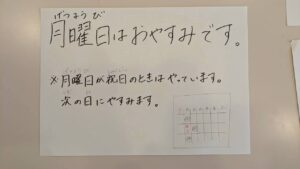 げつようび
月曜日はおやすみです。
※月曜日が祝日のときはやっています。
次の日にやすみます。